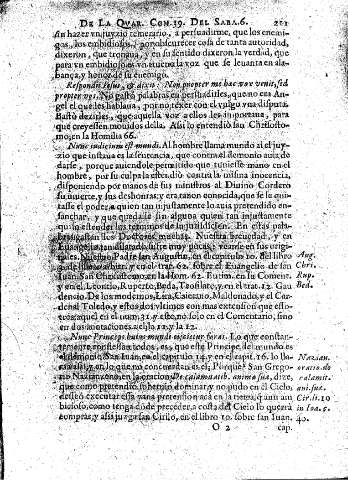 DE LA QUAR. CON. 39. DEL SABA. 6. 211
sin hazer vn juyzio temerario, a persuadirme, que los enemi-
gos, los embidiosos, por obscurecer cosa de tanta autoridad,
dixeron, que tronaua, y en su sentido dixeron la verdad, que
para vn embidioso es vn trueno la voz que se leuanta en ala-
bança, y honor de su enemigo.
Respondit Iesus, & dixit: Non propter me hac vox venit, sed
propter vos. No gastó palabras en persuadirles, que no era An-
gel el que les hablaua, por no texer con el vulgo vna disputa.
Bastó dezirles, que aquella voz a ellos les importaua, para
que creyessen mouidos della. Assi lo entendió san Chrisosto-
mo, en la Homilia 66.
Nunc iudicium est mundi. Al hombre llama mundo, al juy-
zio que instaua es la sentencia, que contra el demonio auia de
darse, porque auiendole permitido que tuuiesse mano en el
hombre, por su culpa estendió contra la misma inocencia,
disponiendo por manos de sus ministros al Diuino Cordero
su muerte, y sus deshonras, y era razon conocida, que se le qui-
tasse el poder a quien tan injustamente lo auia pretendido en-
sanchar, y que quede sin alguna quien tan injustamente
quiso estender los terminos de la jurisdicion. En estas pala-
bras gastan los Doctores muchas. Nuestra sequedad, y en
Euangelio tan dilatado, sufre muy pocas, veanse en sus origi-
nales. Nuestro Padre san Augustin, en el capitulo 10. del libro
tract. 62. sobre el Euangelio de san
Iuan. San Chrisostomo en la Hom. 62. Eutim. en su Coment.
y en el Leoncio, Ruperto, Beda, Teofilato, y en el trat. 12. Gau
dencio. De los modernos, Lira, Caietano, Maldonado, y el Car-
denal Toledo, y estos dos vltimos con mas extension que esto-
tros, aquel en el num. 31. y este, no solo en el Comentario, sino
en dos anotaciones, a ellos 11. y la 12.
Aug.
Chri.
Rup.
Bed.
Nunc Princeps huius mundi eijcietur foras. Lo que constan-
temente confiessan todos, es, que este Principe del mundo es
el demonio. San Iuan, en el capitulo 14. y en el capit. 16. lo lla-
Porque San Grego-
rio Nazianzeno en la oracion De calamitatib. anima sua, dize,
que como pretendió soberuio dominar, y no pudo en el Cielo,
desseó executar essa vana pretension acá en la tierra, q un am
bicioso, como tenga donde preceder, a costa del Cielo lo querrá
comprar, y assi juzga san Cirilo, en el libro 10. sobre san Iuan,
Nazian.
oratio. de
calamit.
ani. sua.
Cir. li. 10
in Ioa. c.
40.
O 2 cap.